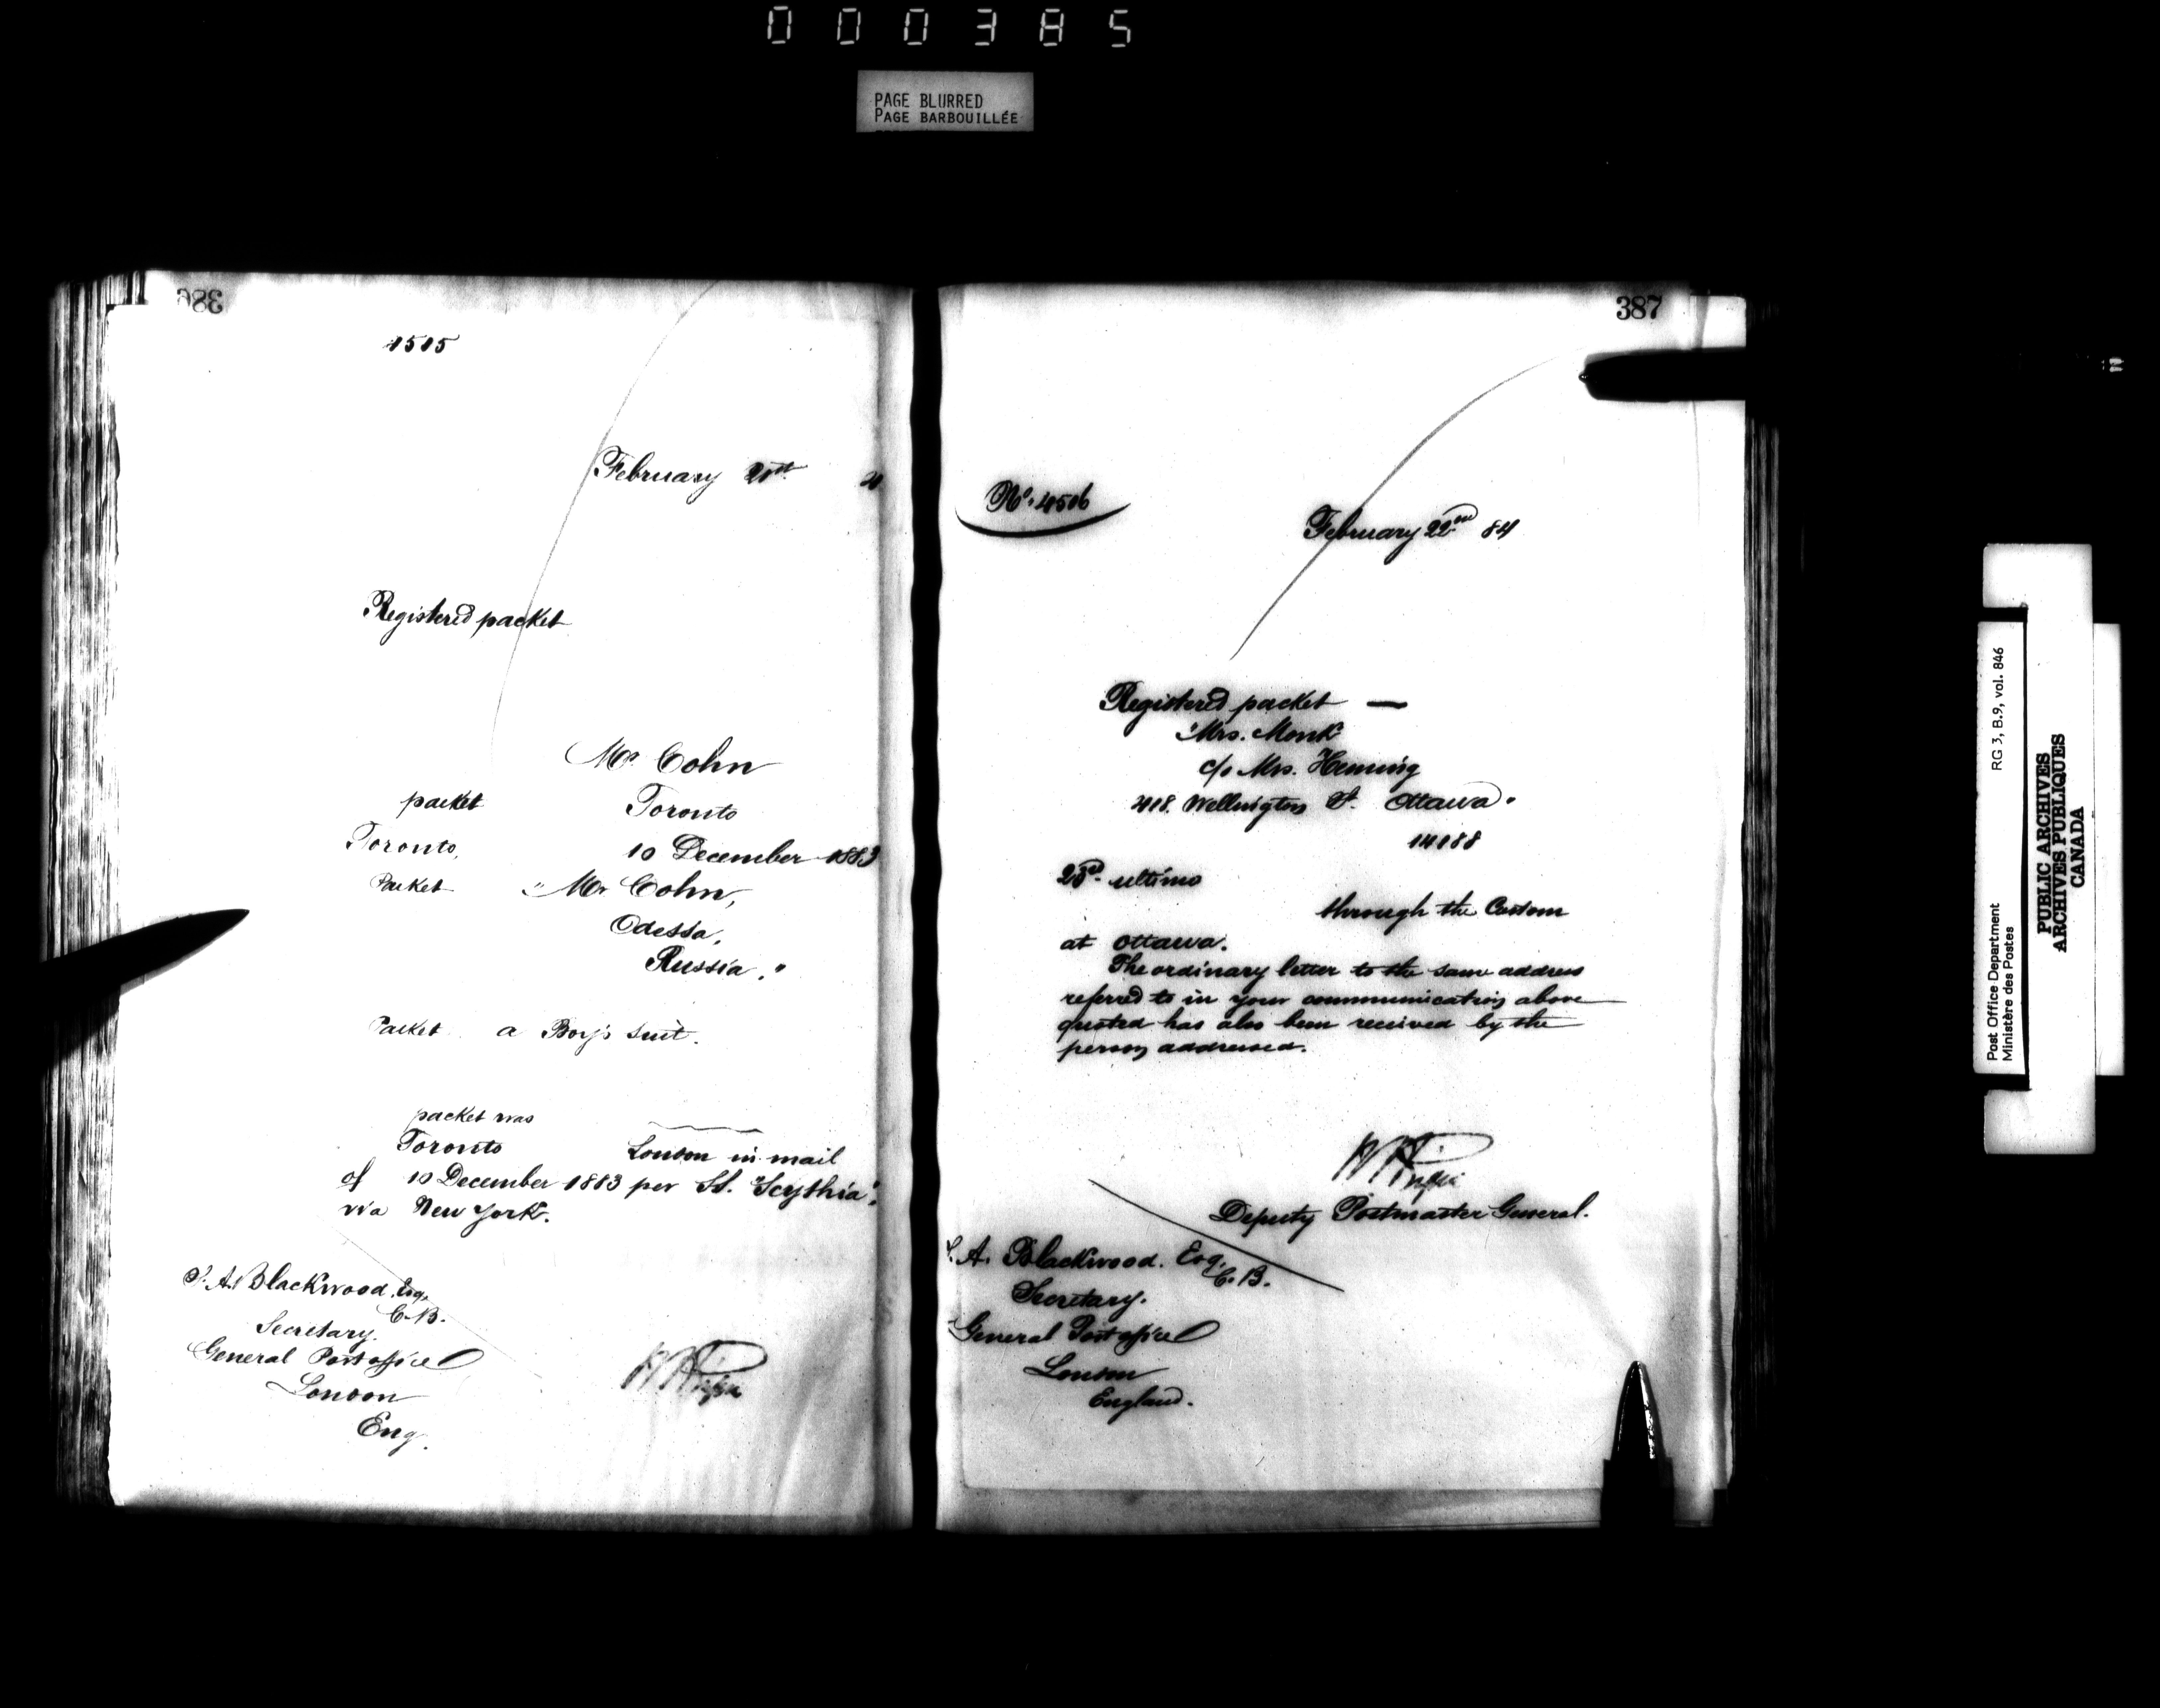 000385
PAGE BLURRED
PAGE BARBOUILLÉE
386
1515
February 21st 4
Registered packet
Mr Cohn
packet Toronto
Toronto, 10 December 1883
Packet "Mr Cohn,
Odessa,
Russia."
Packet a Boy's suit.
packet was
Toronto London in mail
of 10 December 1883 per SS. "Scythia",
via New York.
S. A. Blackwood, Esq.
C.B.
Secretary.
General Post office
London
Eng.
387
No. 1506
February 22nd 84
Registered packet —
"Mrs. Monk
c/o Mrs. Heming
418. Wellington St. Ottawa"
14188
23rd. ultimo
through the Custom
at Ottawa.
The ordinary letter to the same address
referred to in your communication above
quoted has also been received by the
person addressed.
Deputy Postmaster General.
S. A. Blackwood. Esq.
C.B.
Secretary.
General Post office
London
England.
Post Office Department RG 3, B.9, vol. 846
Ministère des Postes
PUBLIC ARCHIVES
ARCHIVES PUBLIQUES
CANADA